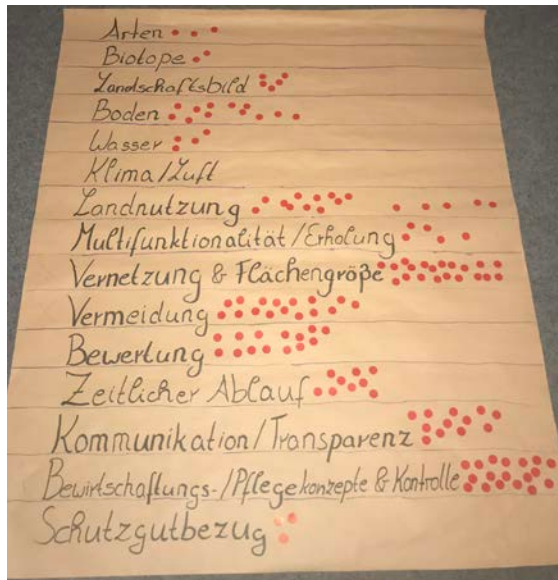 Arten
Biotope
Landschaftsbild
Boden
Wasser
Klima/Luft
Landnutzung
Multifunktionalität/Erholung
Vernetzung & Flächengröße
Vermeidung
Bewertung
Zeitlicher Ablauf
Kommunikation/Transparenz
Bewirtschaftungs-/Pflegekonzepte & Kontrolle
Schutzgutbezug